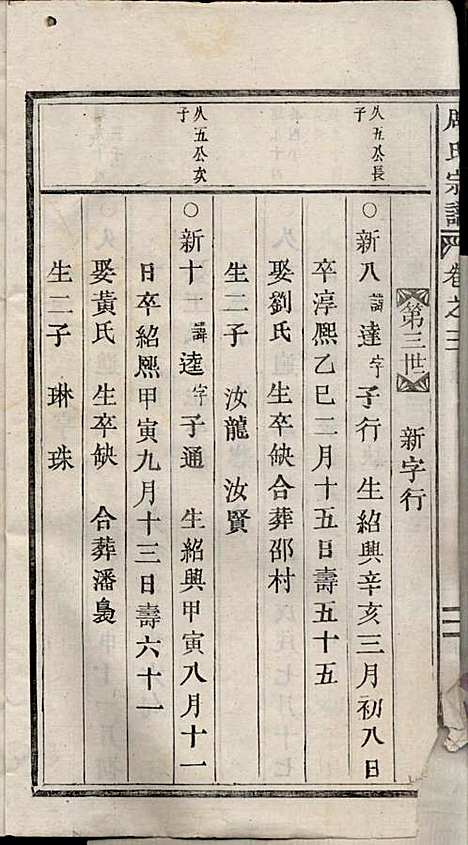 周氏宗譜 卷之三
第三世 新字行
久五公長子
○新八 諱達 字子行 生紹興辛亥三月初八日
卒淳熙乙巳二月十五日壽五十五
娶劉氏 生卒缺合葬邵村
生二子 汝龍 汝賢
久五公次子
○新十一 諱逵 字子通 生紹興甲寅八月十一
日卒紹熙甲寅九月十三日壽六十一
娶黃氏 生卒缺 合葬潘裊
生二子 琳 珠